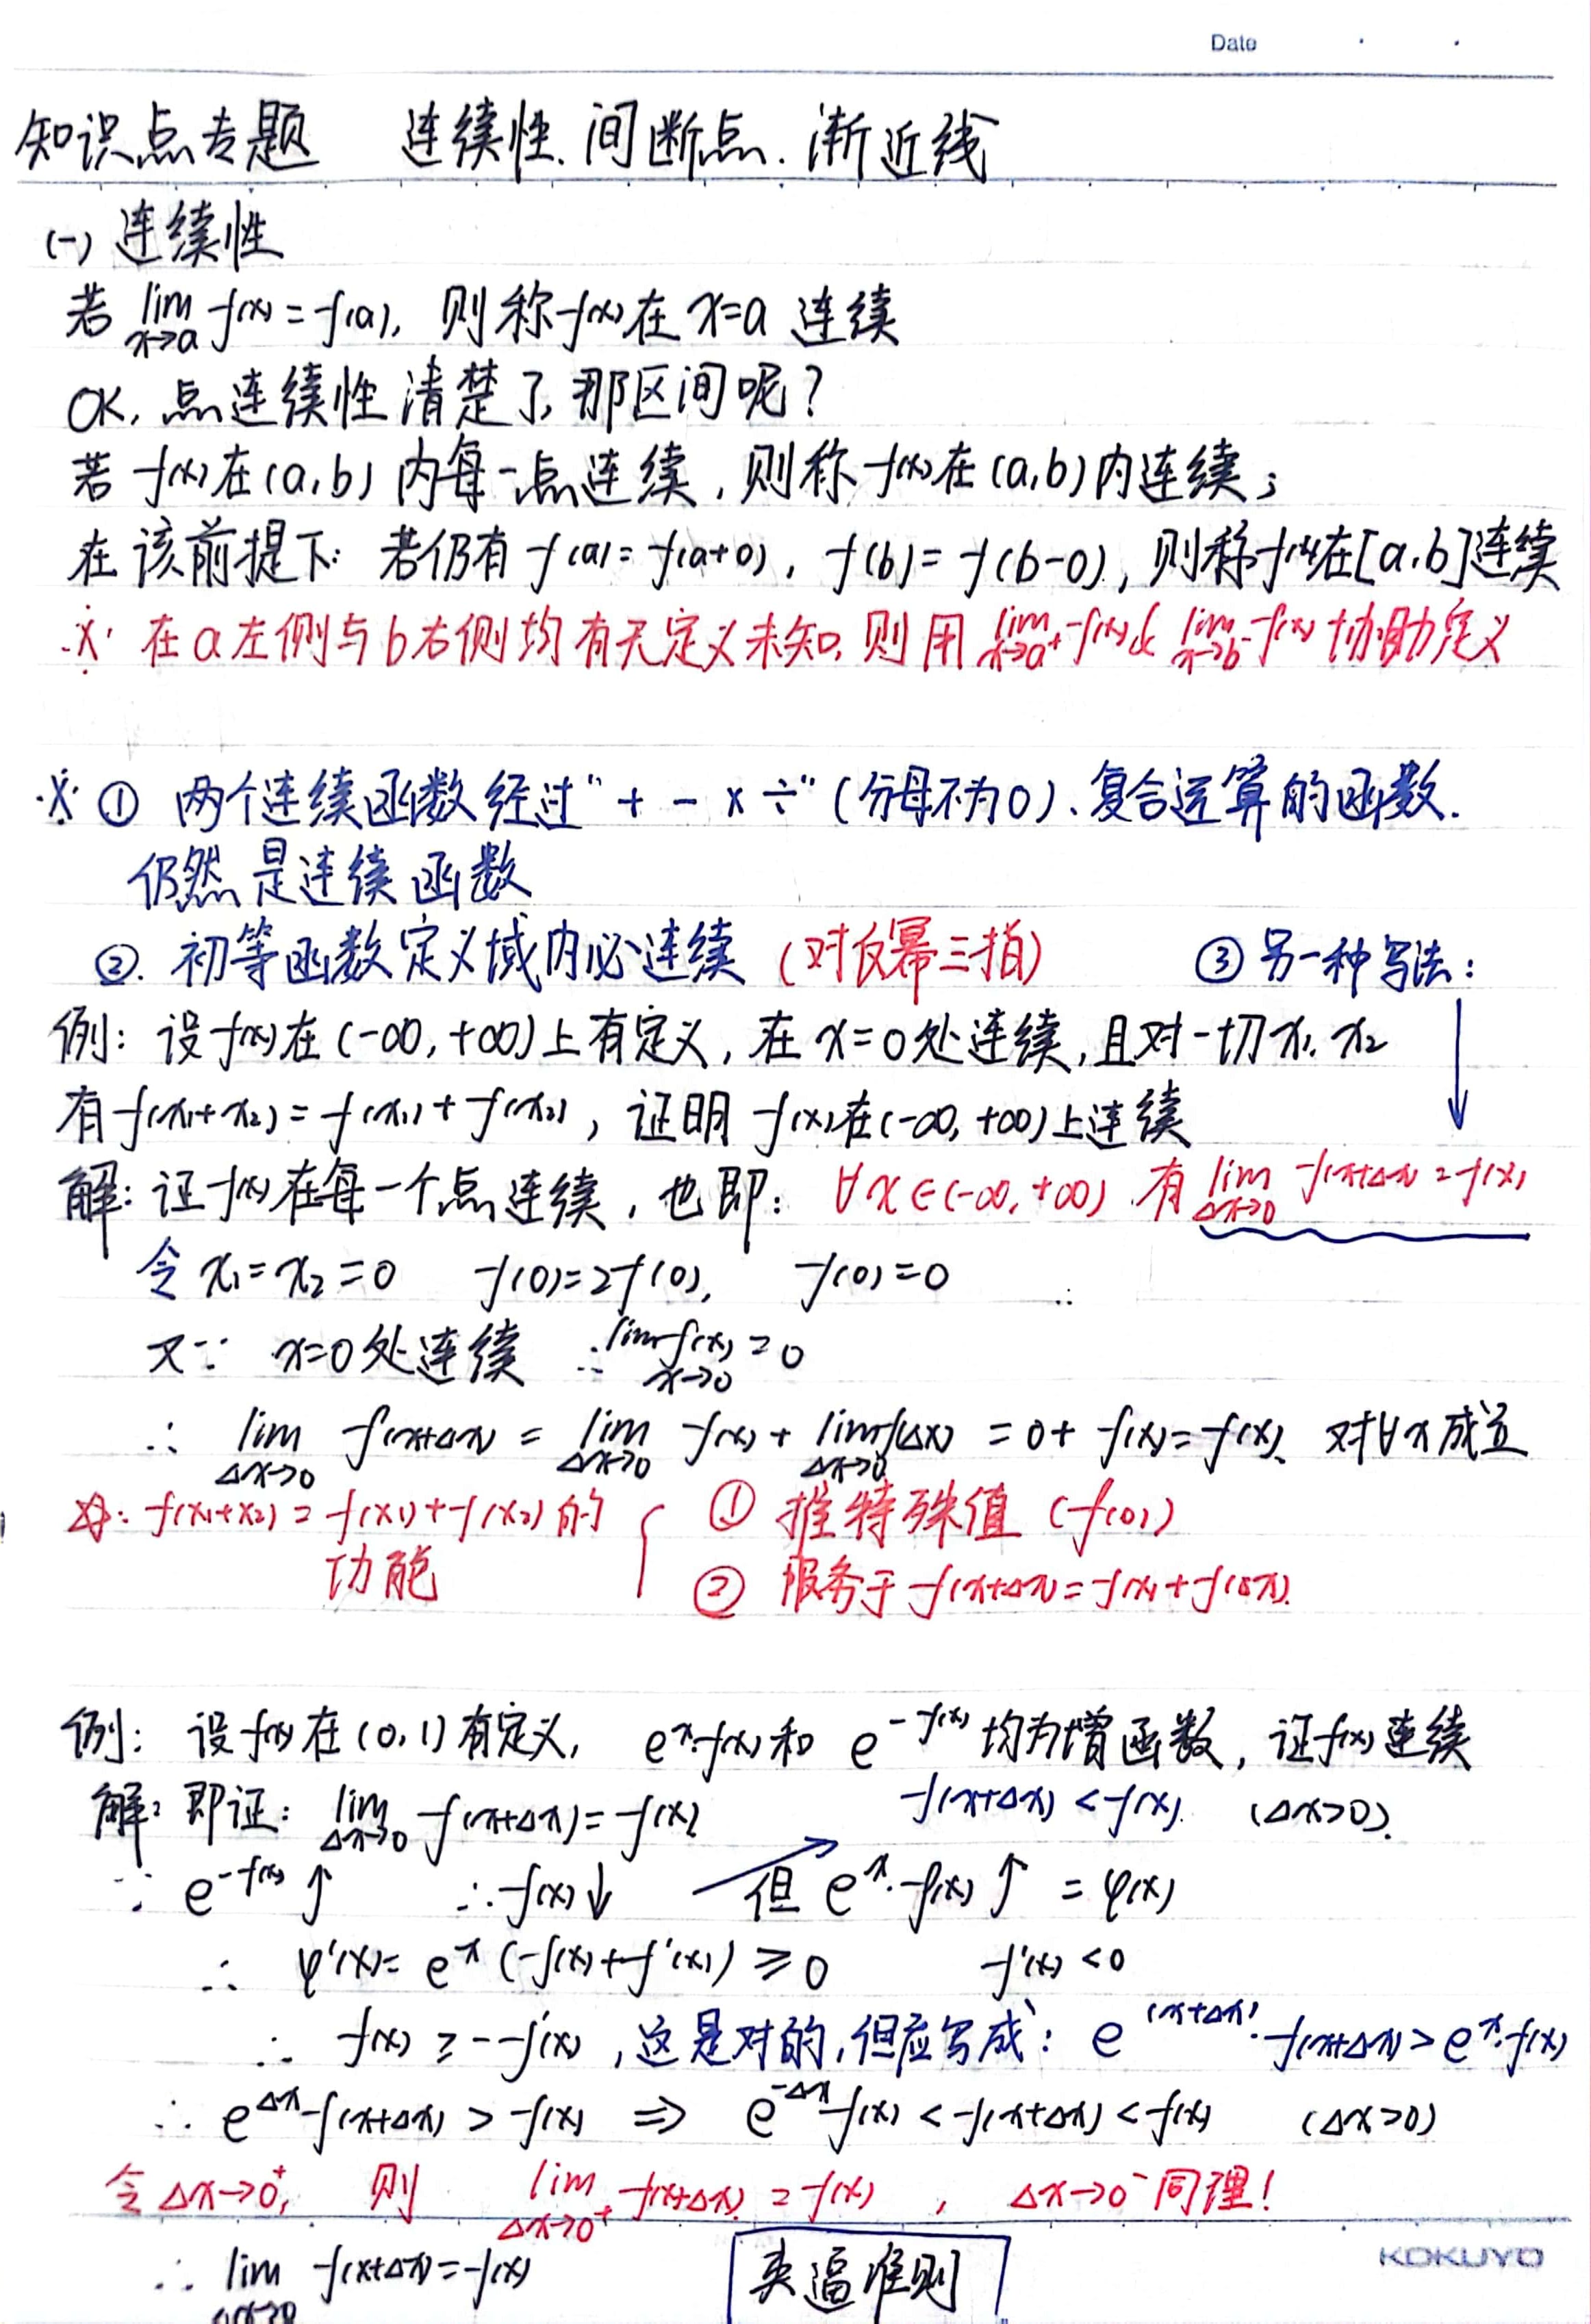 Date
知识点专题 连续性、间断点、渐近线
(一) 连续性
若 lim_{x→a} f(x) = f(a), 则称 f(x) 在 x=a 连续
OK, 点连续性清楚了, 那区间呢?
若 f(x) 在 (a,b) 内每一点连续, 则称 f(x) 在 (a,b) 内连续;
在该前提下: 若仍有 f(a) = f(a+0), f(b) = f(b-0), 则称 f(x) 在 [a,b] 连续
※ 在 a 左侧与 b 右侧均有无定义未知, 则用 lim_{x→a⁺} f(x) & lim_{x→b⁻} f(x) 协助定义
※ ① 两个连续函数经过 "+ - × ÷" (分母不为0)、复合运算的函数.
仍然是连续函数
②. 初等函数定义域内必连续 (对反幂三指) ③ 另一种写法:
例: 设 f(x) 在 (-∞, +∞) 上有定义, 在 x=0 处连续, 且对一切 x₁, x₂
有 f(x₁+x₂) = f(x₁) + f(x₂), 证明 f(x) 在 (-∞, +∞) 上连续
解: 证 f(x) 在每一个点连续, 也即: ∀x∈(-∞, +∞) 有 lim_{Δx→0} f(x+Δx) = f(x)
令 x₁ = x₂ = 0 f(0) = 2f(0), f(0) = 0
又∵ x=0 处连续 ∴ lim_{x→0} f(x) = 0
∴ lim_{Δx→0} f(x+Δx) = lim_{Δx→0} f(x) + lim_{Δx→0} f(Δx) = 0 + f(x) = f(x). 对∀x成立
☆: f(x₁+x₂) = f(x₁) + f(x₂) 的 { ① 推特殊值 (f(0))
功能 ② 服务于 f(x+Δx) = f(x) + f(Δx).
例: 设 f(x) 在 (0,1) 有定义, e^x·f(x) 和 e^{-f(x)} 均为增函数, 证 f(x) 连续
解: 即证: lim_{Δx→0} f(x+Δx) = f(x) f(x+Δx) < f(x). (Δx>0).
∵ e^{-f(x)} ↑ ∴ f(x) ↓ 但 e^x·f(x) ↑ = φ(x)
∴ φ'(x) = e^x (f(x) + f'(x)) ≥ 0 f'(x) < 0
∴ f(x) ≥ -f'(x), 这是对的, 但应写成: e^{(x+Δx)}·f(x+Δx) > e^x·f(x)
∴ e^{Δx} f(x+Δx) > f(x) ⇒ e^{-Δx} f(x) < f(x+Δx) < f(x) (Δx>0)
令 Δx→0⁺, 则 lim_{Δx→0⁺} f(x+Δx) = f(x), Δx→0⁻ 同理!
∴ lim_{Δx→0} f(x+Δx) = f(x) 夹逼准则
KOKUYO